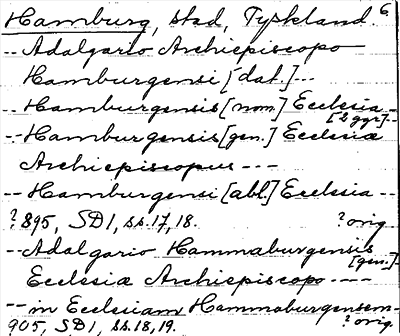 Hamburg, stad, Tyskland. 6.
-- Adalgario Archiepiscopo
Hamburgensi [dat.] --
-- Hamburgensis [nom.] Ecclesia --
[2 ggr] --
-- Hamburgensis [gen.] Ecclesiæ
Archiepiscopus ---
-- Hamburgensi [abl.] Ecclesia --
? 895, SD1, ss. 17, 18. ? orig.
-- Adalgario Hammaburgensis
[gen.]
Ecclesiæ Archiepiscopo ----
-- in Ecclesiam Hammaburgensem --
905, SD1, ss. 18, 19. ? orig.